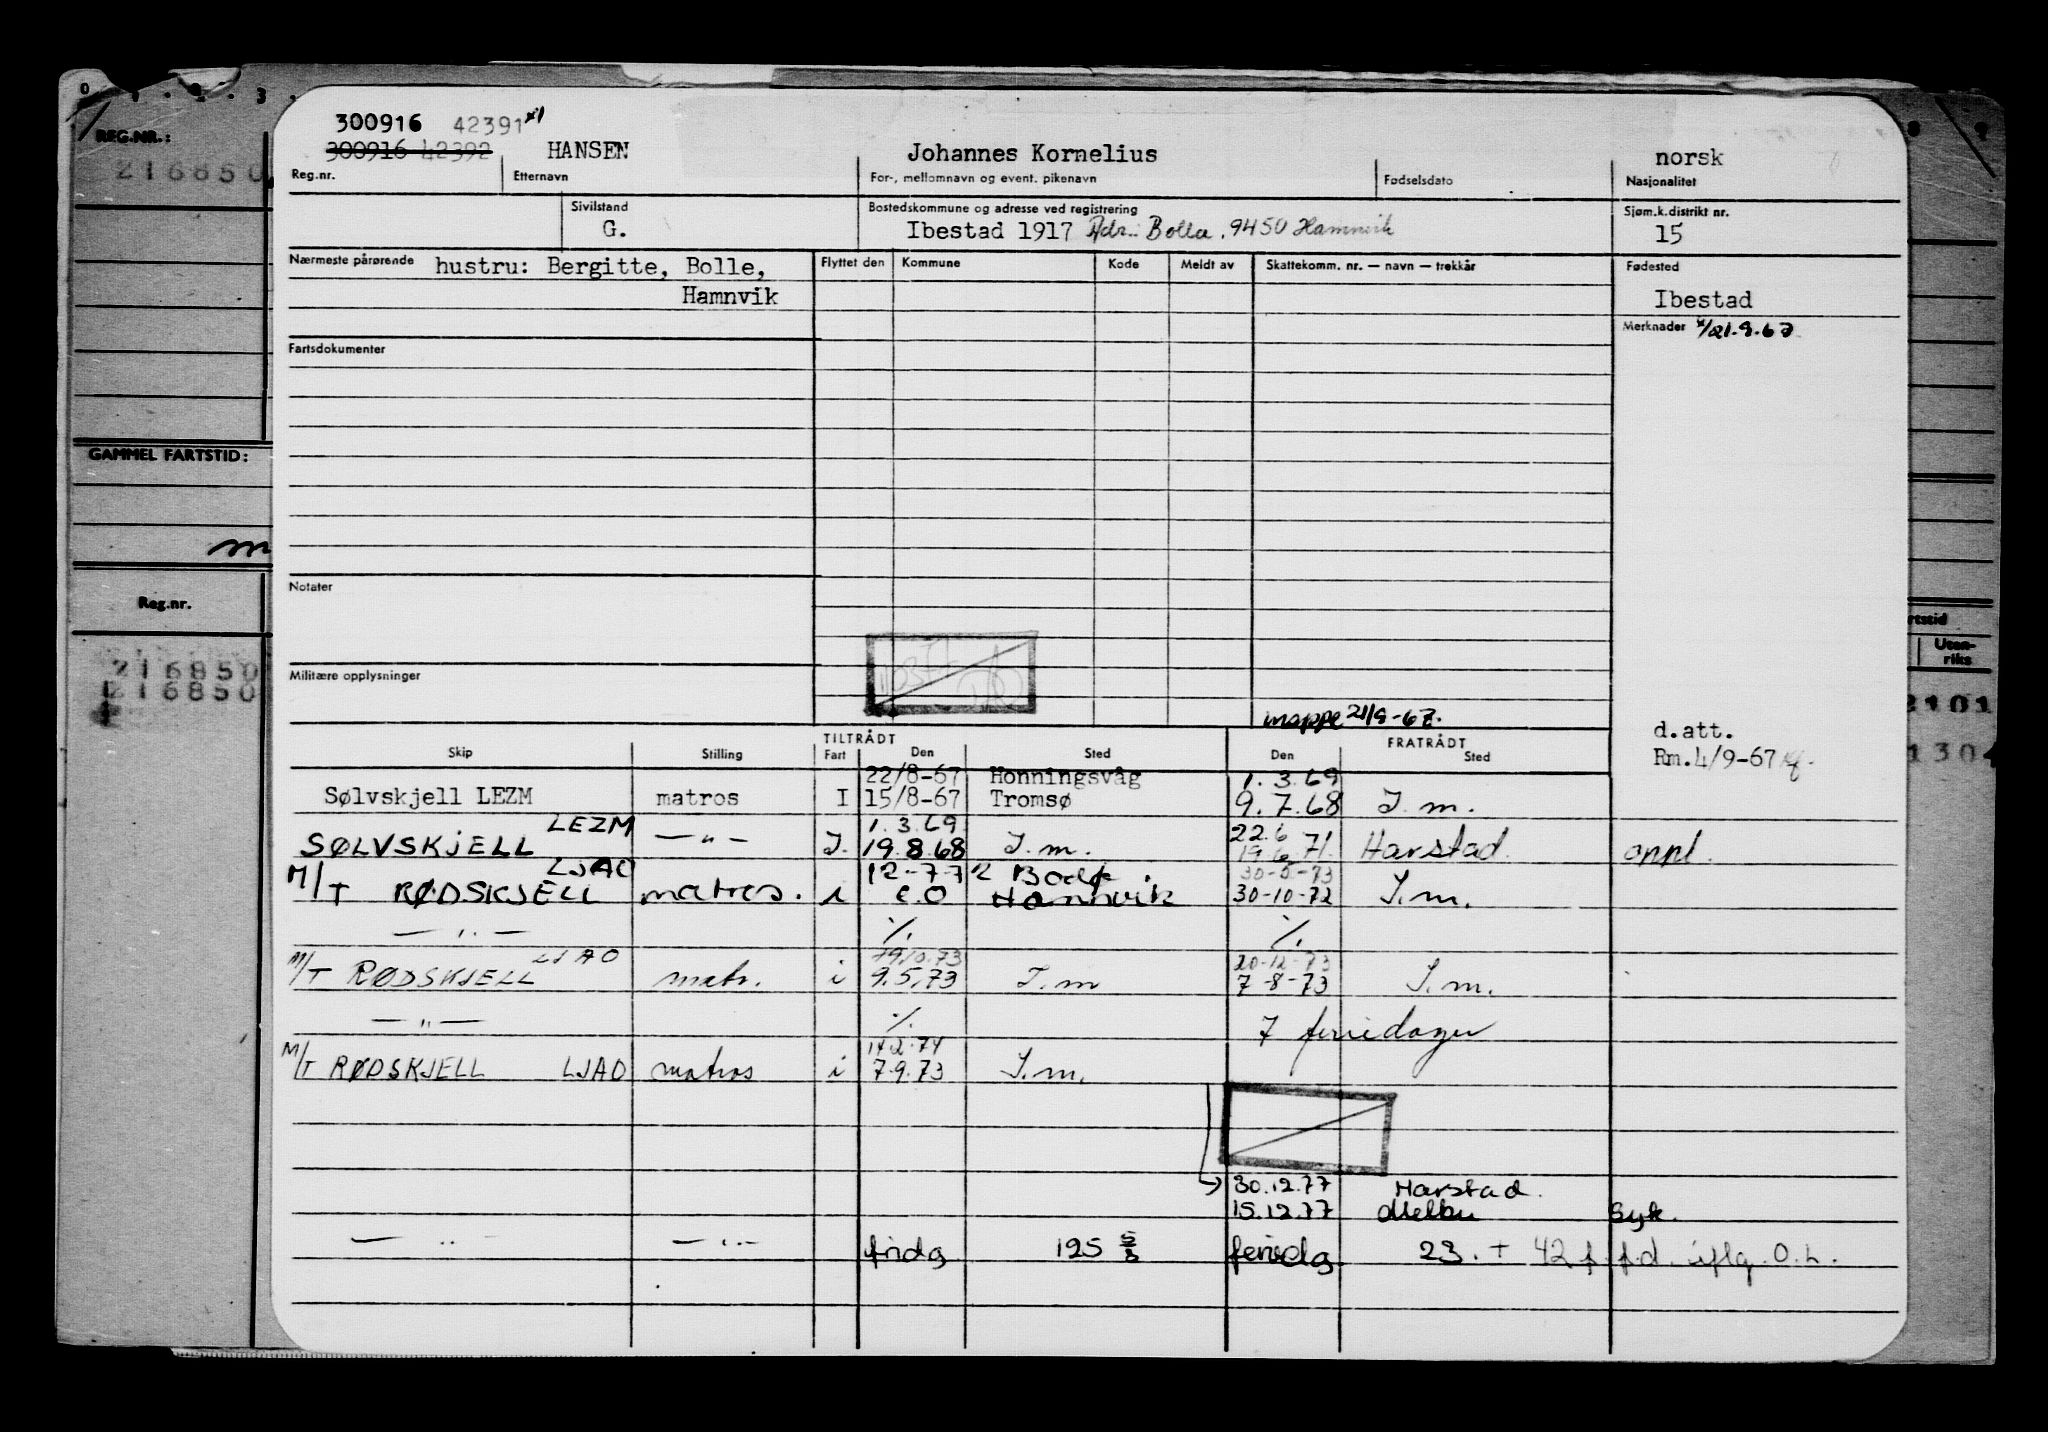 0 1 2 3
REG.NR.:
216850
GAMMEL FARTSTID:
m
Reg.nr.
216850
216850
300916 42391 x/
300916 42392 HANSEN Johannes Kornelius norsk
Reg.nr. Etternavn For-, mellomnavn og event. pikenavn Fødselsdato Nasjonalitet
Sivilstand Bostedskommune og adresse ved registrering Sjøm.k.distrikt nr.
G. Ibestad 1917 Adr.: Bolla, 9450 Hamnvik 15
Nærmeste pårørende hustru: Bergitte, Bolle, Flyttet den Kommune Kode Meldt av Skattekomm. nr. — navn — trekkår Fødested
Hamnvik Ibestad
Merknader x/21.9.67
Fartsdokumenter
Notater
Militære opplysninger
mappe 21/9-67.
d.att.
Rm.4/9-67
TILTRÅDT FRATRÅDT
Skip Stilling Fart Den Sted Den Sted
22/8-67 Honningsvåg 1.3.69
Sølvskjell LEZM matros I 15/8-67 Tromsø 9.7.68 I.m.
LEZM 1.3.69 22.6
SØLVSKJELL — " — I. 19.8.68 I.m. 19.6.71. Harstad oppl.
LJAO 12-7-72 Bodø 30-5-73
M/T RØDSKJELL matros. i e.O Hamnvik 30-10-72 I.m.
— " — ./. ./.
LJAO 19.10.73 20-12-73
M/T RØDSKJELL matr. i 9.5.73 I.m 7-8-73 I.m.
— " — ./. 7 feriedager
14.2.74
M/T RØDSKJELL LJAO matros i 7.9.73 I.m.
30.12.77 Harstad.
15.12.77 Melbu Syk.
— " — — " — fridg 125 5/8 feriedg 23. + 42 f.f.d. iflg. O.L.
rtstid
Uten-
riks
2101
130